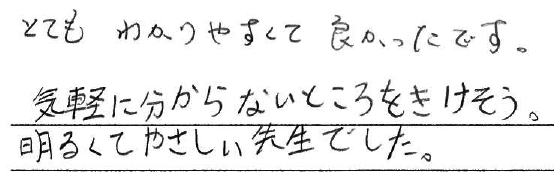 とても わかりやすくて 良かったです。
気軽に分からないところをきけそう。
明るくてやさしい先生でした。